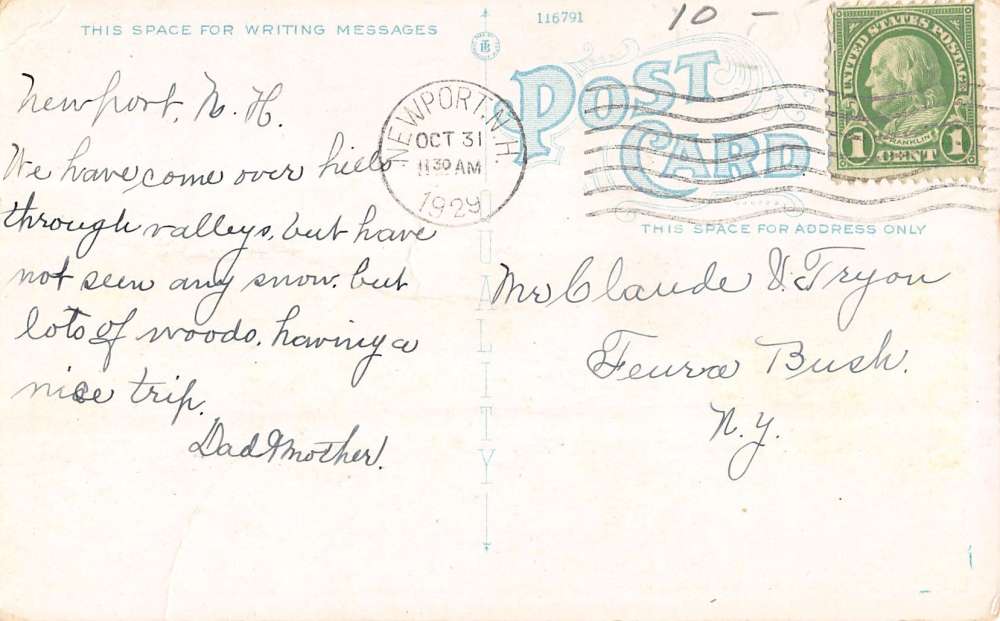 THIS SPACE FOR WRITING MESSAGES
Newport, N. H.
We have come over hills
through valleys, but have
not seen any snow. but
lots of woods. having a
nice trip.
Dad & Mother.
116791
10 -
POST
CARD
NEWPORT, N.H.
OCT 31
11 30 AM
1929
UNITED STATES POSTAGE
FRANKLIN
1 CENT 1
THIS SPACE FOR ADDRESS ONLY
Mr Claude V. Tryon
Feura Bush.
N.Y.
QUALITY